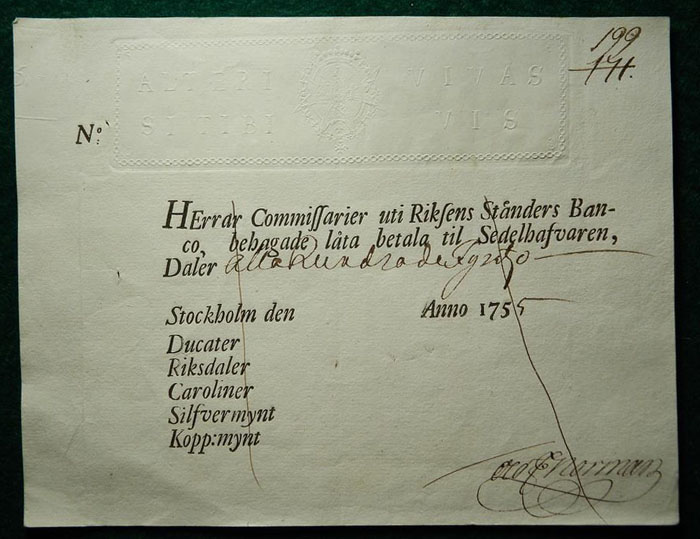 199
171.
ALTERI VIVAS
SI TIBI VIS
No.
HErrar Commiſſarier uti Rikſens Ständers Ban-
co, behagade låta betala til Sedelhafvaren,
Daler
Stockholm den Anno 1755
Ducater
Riksdaler
Caroliner
Silfvermynt
Kopp:mynt